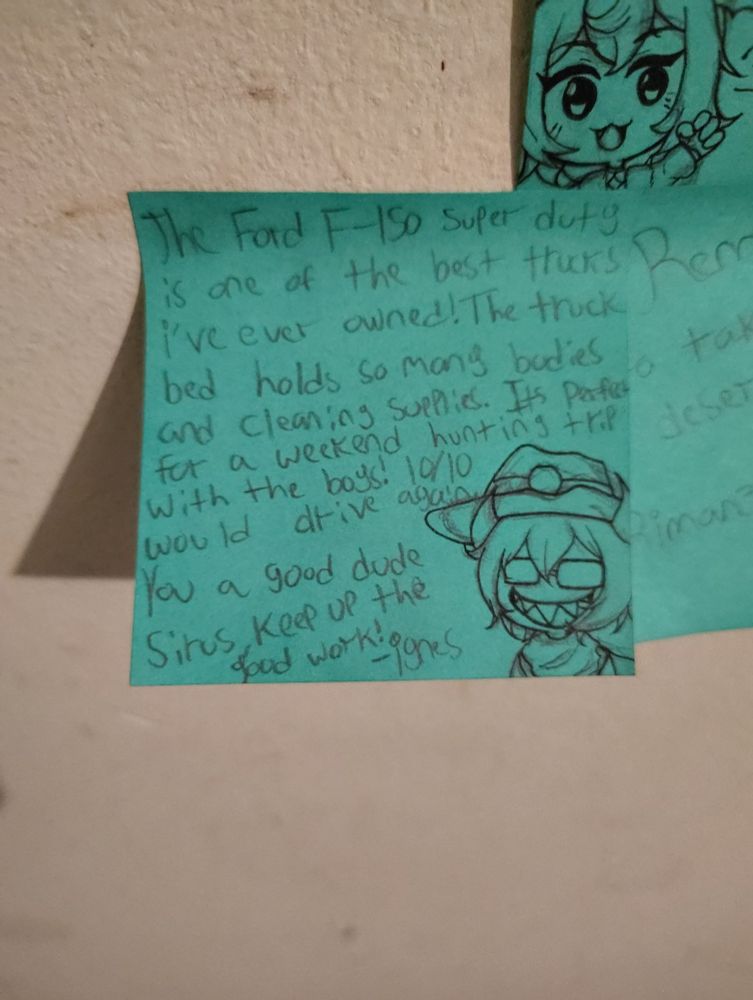 The Ford F-150 Super duty
is one of the best trucks
i've ever owned! The truck
bed holds so many bodies
and cleaning supplies. Its Perfect
for a weekend hunting trip
with the boys! 10/10
would drive again
You a good dude
Sirus Keep up the
good work!
Rem
tak
deser